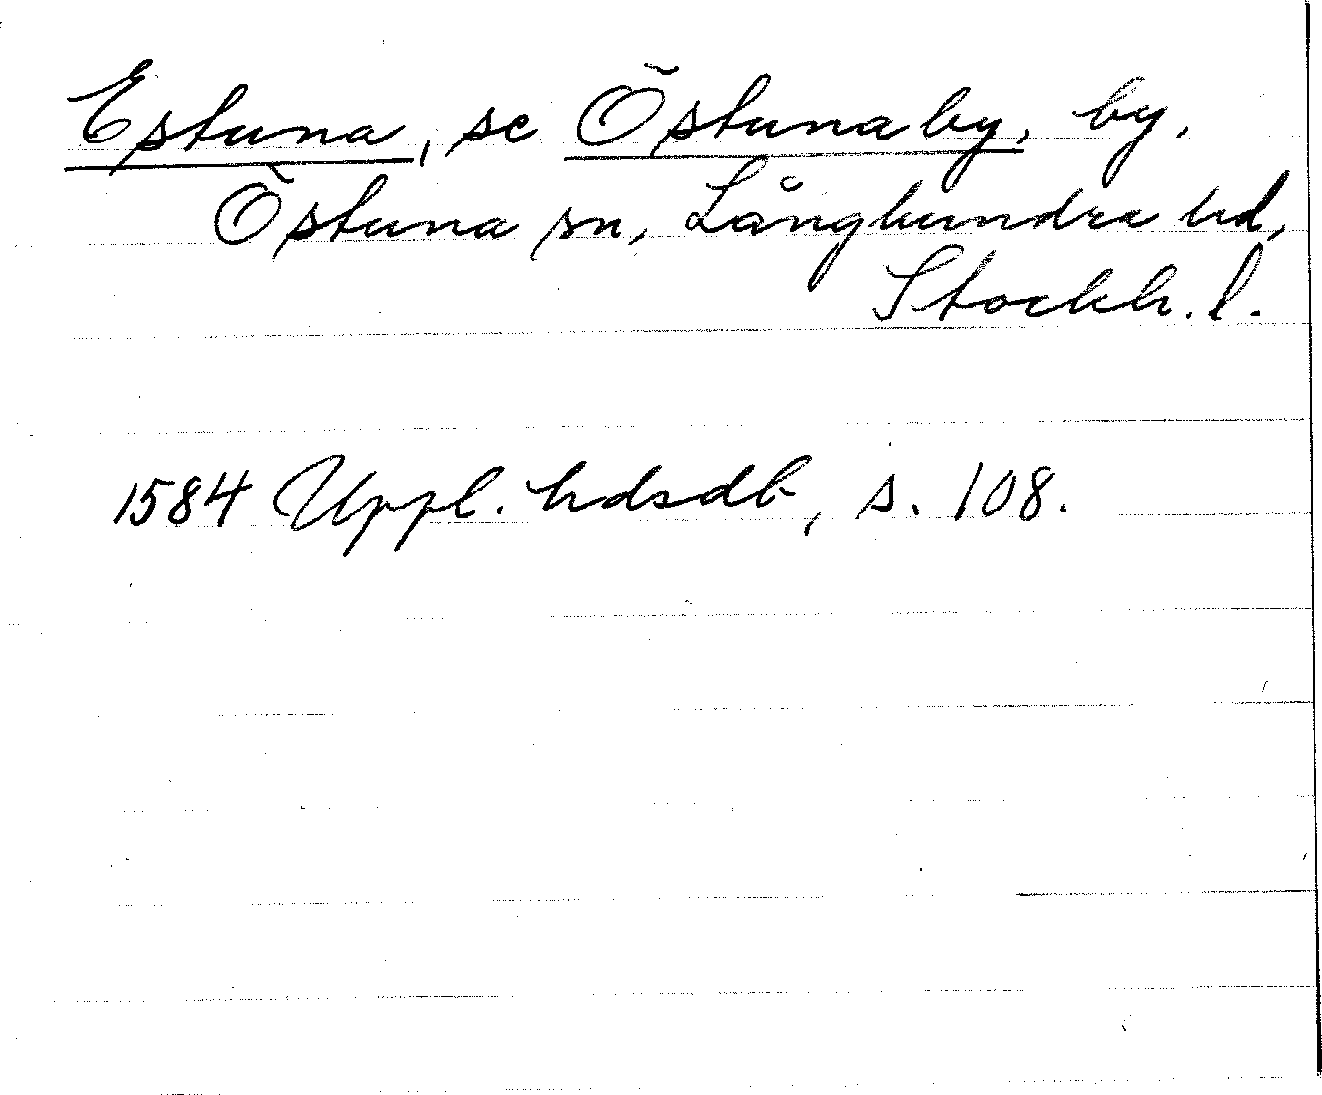 Estuna, se Östunaby, by.
Östuna sn, Långhundra hd,
Stockh. l.
1584 Uppl. hdsdb, s. 108.